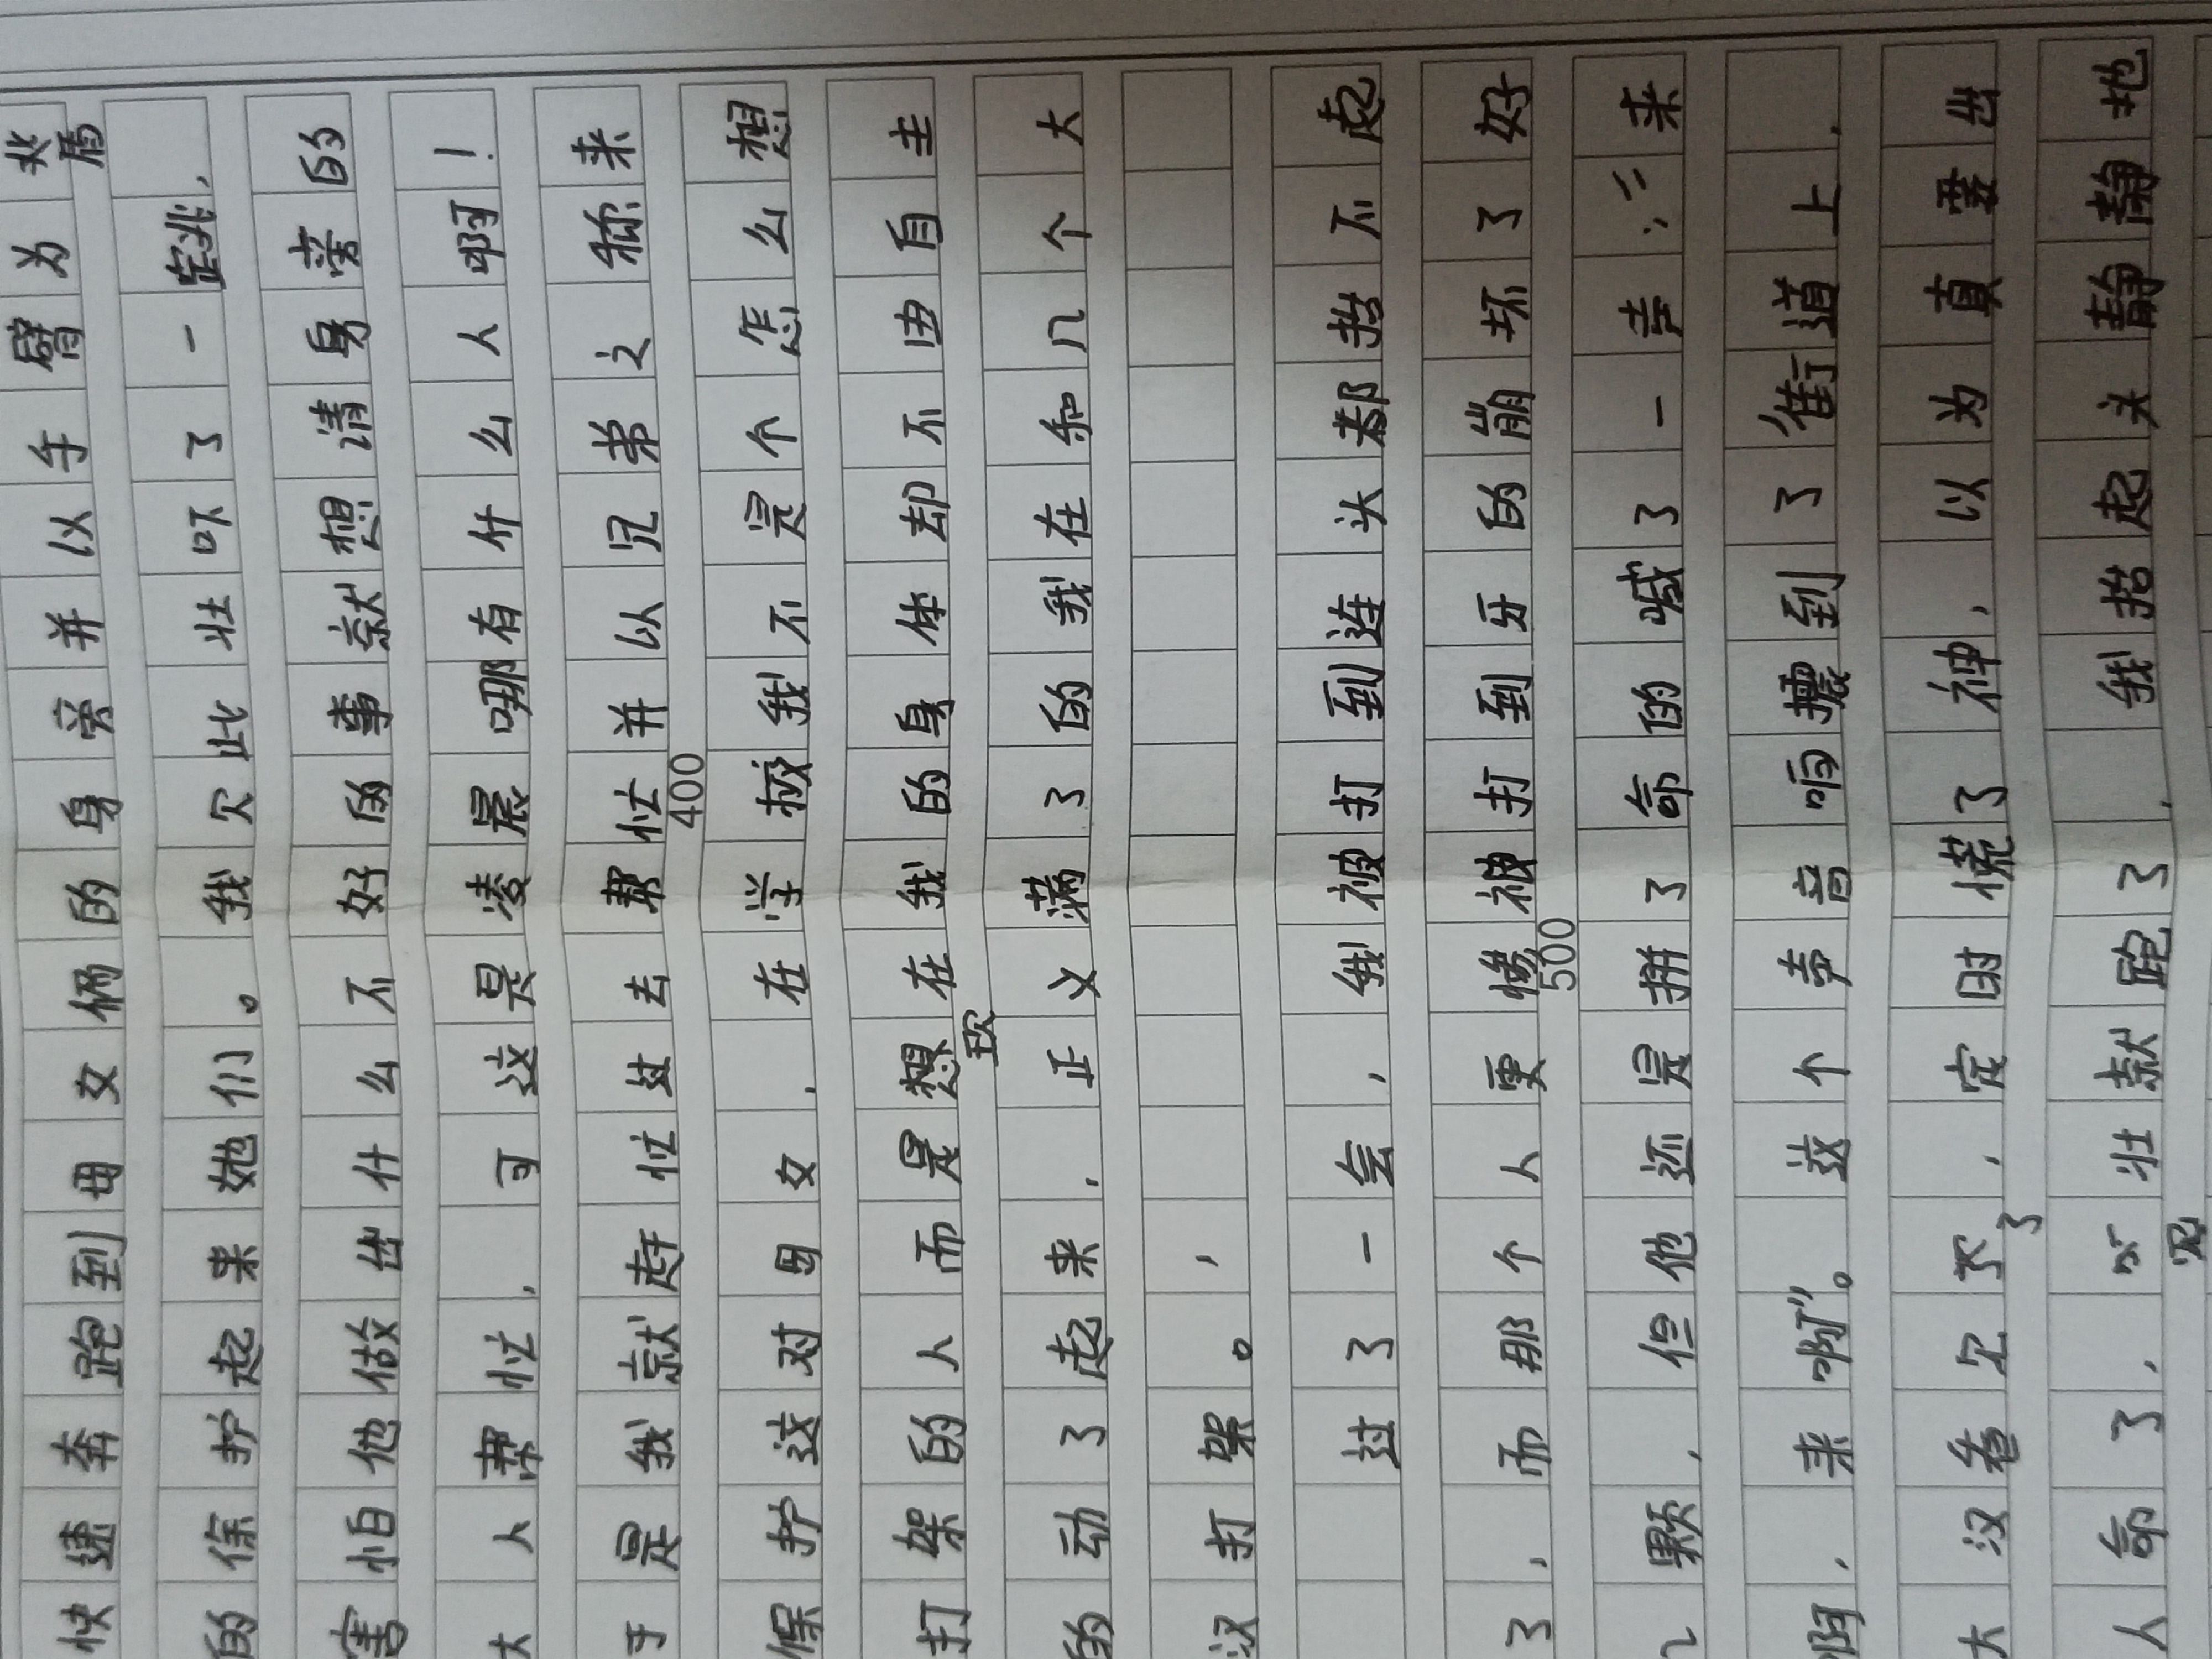 快速奔跑到母女俩的身旁并以手臂为盾
的徐护起来她们。我欠此壮吓了一跳，
害怕他做出什么不好的事就想请身旁的
大人帮忙，可这是凌晨哪有什么人啊！
于是我就赶忙过去帮忙并以兄弟之称来
400
保护这对母女，在学校我不是个怎么想
打架的人而是现在我的身体却不由自主
的动了起来，正义满了的我在和几个大
汉打架。
过了一会，我被打到连头都抬不起
了，而那个人更惨被打到牙的崩坏了好
500
几颗，但他还是拼了命的喊了一声：“来
啊，来啊”。这个声音响攘到了街道上，
大汉看欠了，定时慌了神，以为真要出
人命了，见壮就跑了，我抬起头静静地